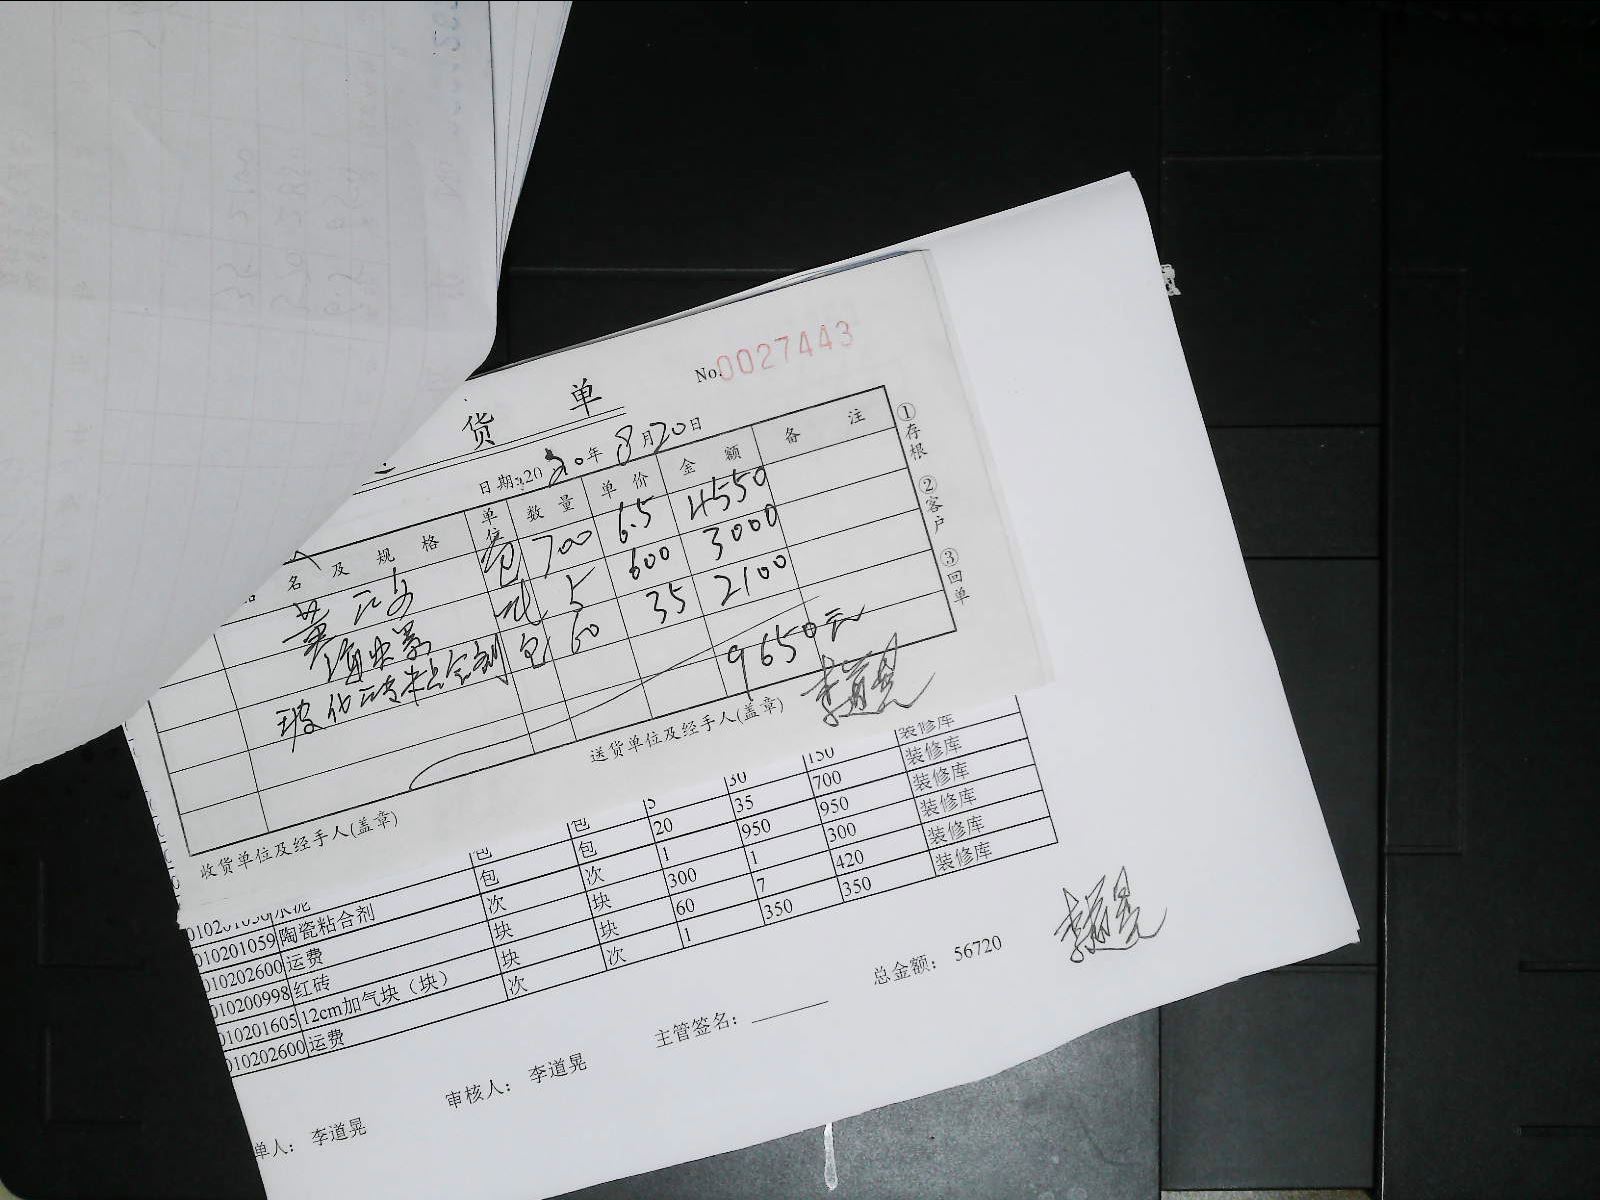 No.0027443
货 单
日期:2020年8月20日
名及规格 单位 数量 单价 金额 备注
黄沙 包 700 6.5 4550
吨 5 600 3000
玻化砖粘合剂 包 60 35 2100
9650元
①存根 ②客户 ③回单
收货单位及经手人(盖章) 送货单位及经手人(盖章) 李道晃
包 5 30 150 装修库
水泥 包 包 20 35 700 装修库
010201059 陶瓷粘合剂 包 次 1 950 950 装修库
010202600 运费 次 块 300 1 300 装修库
010200998 红砖 块 块 60 7 420 装修库
010201605 12cm加气块（块） 块 次 1 350 350 装修库
010202600 运费 次
单人： 李道晃 审核人： 李道晃 主管签名： 总金额： 56720 李道晃